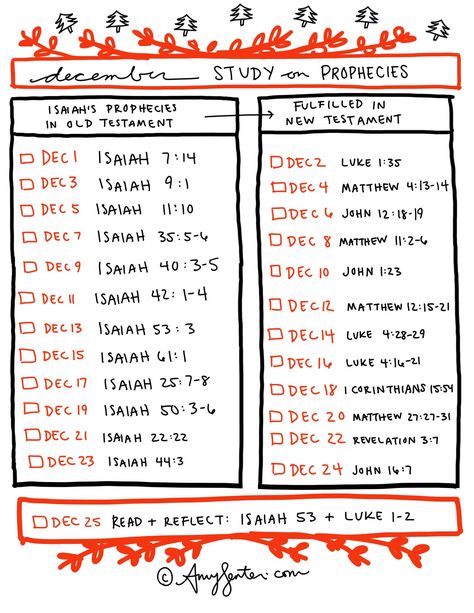 december STUDY on PROPHECIES
ISAIAH'S PROPHECIES
IN OLD TESTAMENT
DEC 1 ISAIAH 7:14
DEC 3 ISAIAH 9:1
DEC 5 ISAIAH 11:10
DEC 7 ISAIAH 35:5-6
DEC 9 ISAIAH 40:3-5
DEC 11 ISAIAH 42:1-4
DEC 13 ISAIAH 53:3
DEC 15 ISAIAH 61:1
DEC 17 ISAIAH 25:7-8
DEC 19 ISAIAH 50:3-6
DEC 21 ISAIAH 22:22
DEC 23 ISAIAH 44:3
FULFILLED IN
NEW TESTAMENT
DEC 2 LUKE 1:35
DEC 4 MATTHEW 4:13-14
DEC 6 JOHN 12:18-19
DEC 8 MATTHEW 11:2-6
DEC 10 JOHN 1:23
DEC 12 MATTHEW 12:15-21
DEC 14 LUKE 4:28-29
DEC 16 LUKE 4:16-21
DEC 18 1 CORINTHIANS 15:54
DEC 20 MATTHEW 27:27-31
DEC 22 REVELATION 3:7
DEC 24 JOHN 16:7
DEC 25 READ + REFLECT: ISAIAH 53 + LUKE 1-2